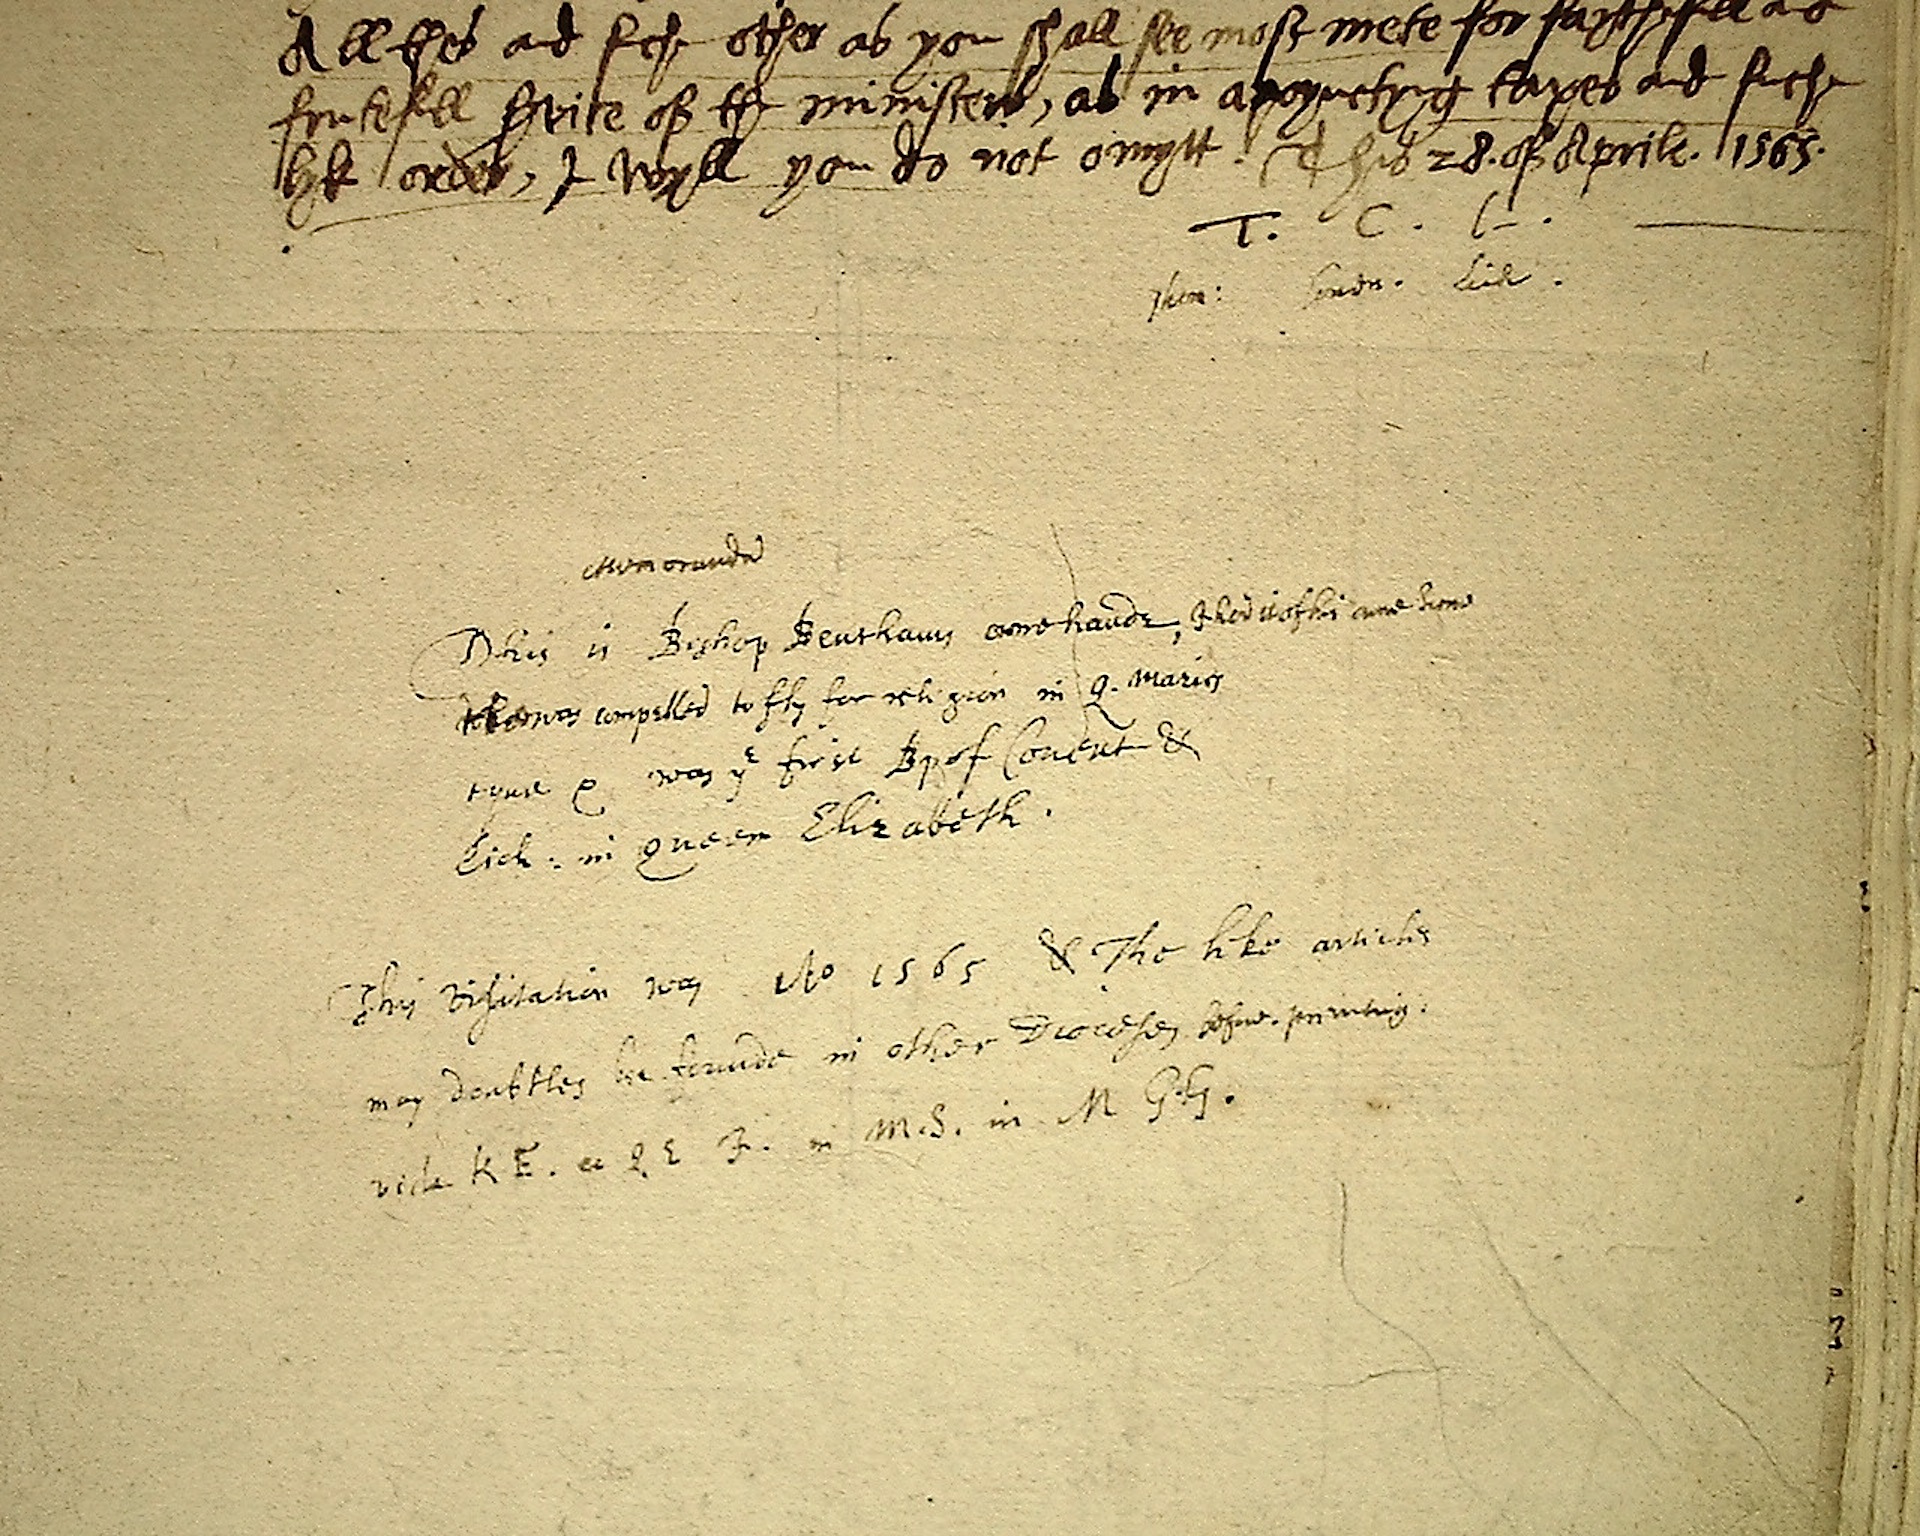 All thes and suche other as you shall see most mete for faythefull and
frutefull servise of the ministers, as in apoyncteyng taxes and suche
lyk order, I wyll you do not omytt. This 28. of Aprile. 1565.
T. C. L.
Thom: Lich.
Memorandũ
This is Bishop Benthams owne hande, I had it of his owne sone
who was compelled to fly for religion in Q. Maries
tyme & was yᵉ first Bp of Couent &
Lich: in Queen Elizabeth.
This visitation was Aᵒ 1565 & The like articles
may doubtles be founde in other Dioceses before printing.
vide K E. et Q E in M.S. in M G.G.